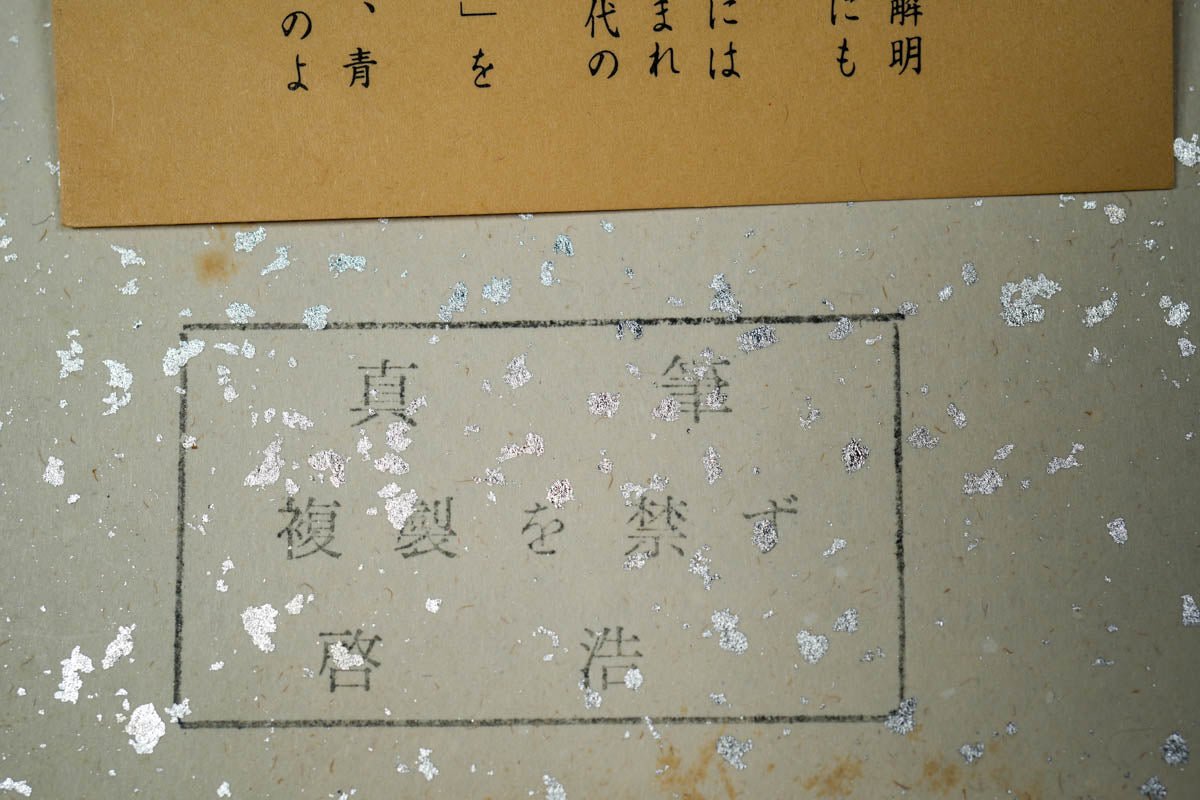 解明
にも
には
まれ
代の
」を
、青
のよ
真筆
複製を禁ず
啓浩